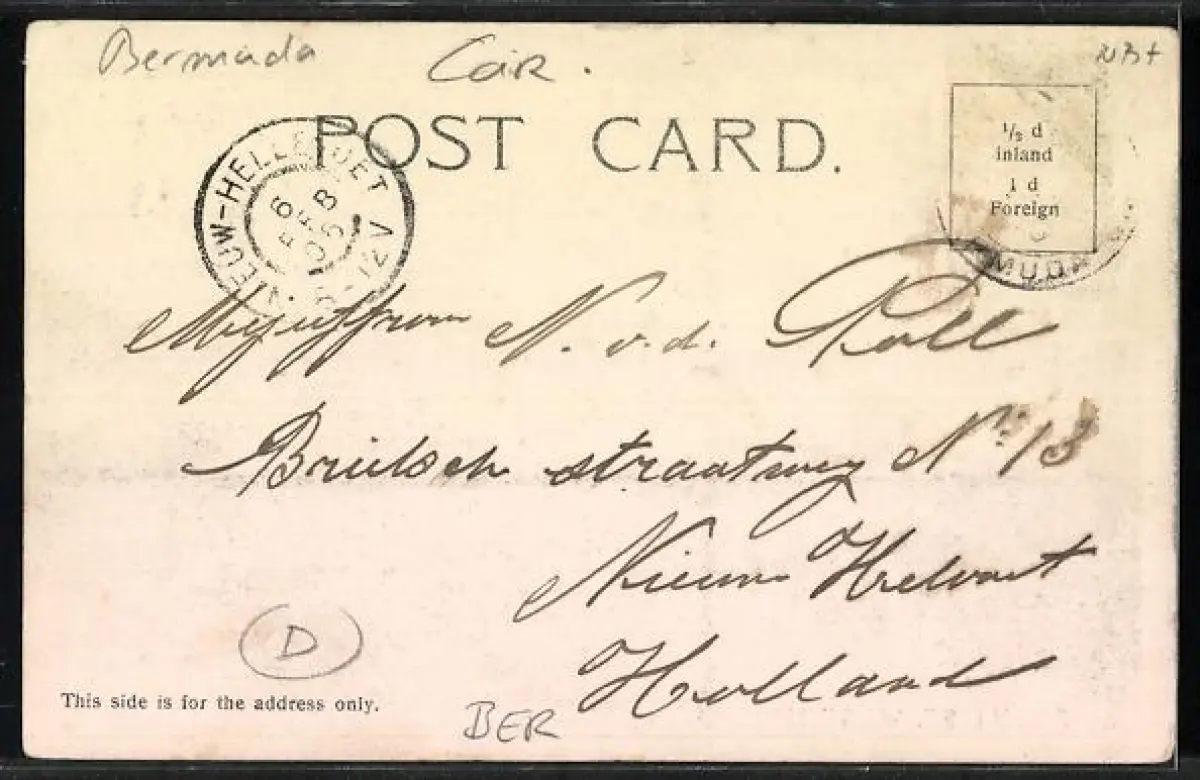 Bermuda Car.
NB+
POST CARD.
1/2 d
inland
1 d
Foreign
NIEUW-HELLEVOET
6 FEB
06
12V
MUDA
Mejuffrouw N. v. d. Poll
straatweg No 13
Nieuw Helvoet
Holland
D
This side is for the address only.
BER